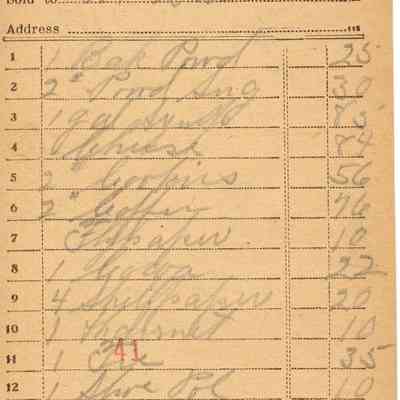 Sold to
Address
1 1 Bak Powd 25
2 2 " Powd Sug 30
3 1 gal 85
4 Cheese 84
5 2 " Cookies 56
6 2 " Coffee 76
7 paper 10
8 1 Cocoa 22
9 4 paper 20
10 1 10
11 1 35
41
12 1 Shoe Pol 10